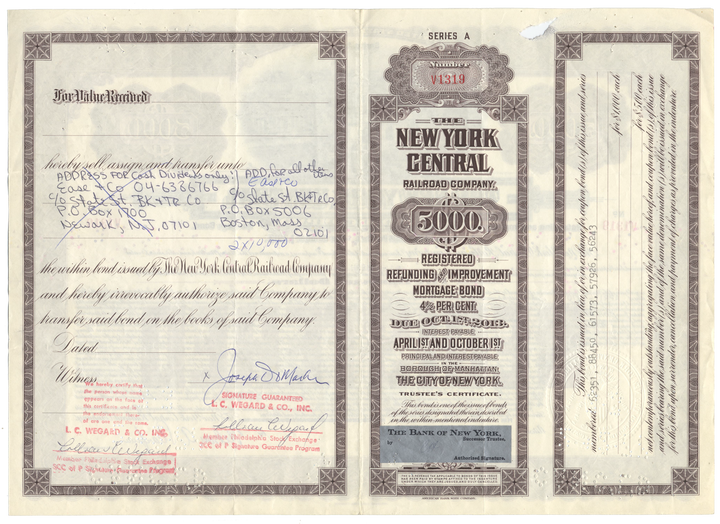 For Value Received
hereby sell assign and transfer unto
ADDRESS FOR Cash Dividends only:
Ease & Co 04-6386766
c/o State St. BK & TR Co
P.O. Box 1700
Newark, N.J. 07101
ADD. for all other
Ease & Co
c/o State St BK & TR Co,
P.O. Box 5006
Boston, Mass
02101
2 x 10,000
the within bond issued by The New York Central Railroad Company
and hereby irrevocably authorize said Company to
transfer said bond on the books of said Company.
Dated
Witness
x
We hereby certify that
the person whose name
appears on the face of
this certificate and in
L. C. WEGARD & CO., INC.
Member Philadelphia Stock Exchange
SCC of P Signature Guarantee Program
SIGNATURE GUARANTEED
L. C. WEGARD & CO., INC.
Member Philadelphia Stock Exchange
SCC of P Signature Guarantee Program
SERIES A
Number
V1319
THE
NEW YORK
CENTRAL
RAILROAD COMPANY.
5000
REGISTERED
REFUNDING AND IMPROVEMENT
MORTGAGE BOND
4½ PER CENT.
DUE OCT. 1ST, 2013.
INTEREST PAYABLE
APRIL 1ST AND OCTOBER 1ST
PRINCIPAL AND INTEREST PAYABLE
IN THE
BOROUGH OF MANHATTAN
THE CITY OF NEW YORK.
TRUSTEE'S CERTIFICATE.
This bond is one of the issue of bonds
of the series designated therein, described
in the within mentioned indenture.
THE BANK OF NEW YORK,
Successor Trustee,
by
Authorized Signature.
This bond is issued in lieu of or in exchange for coupon bond(s) of this issue and series
numbered 62351, 86450, 61573, 57926, 56243 for $1,000 each
for $500 each
not contemporaneously outstanding aggregating the face value hereof and coupon bond(s) of this issue
and series bearing the same number(s) and of the same denomination(s) will be issued in exchange
for this bond upon surrender, cancellation and payment of charges as provided in the indenture.